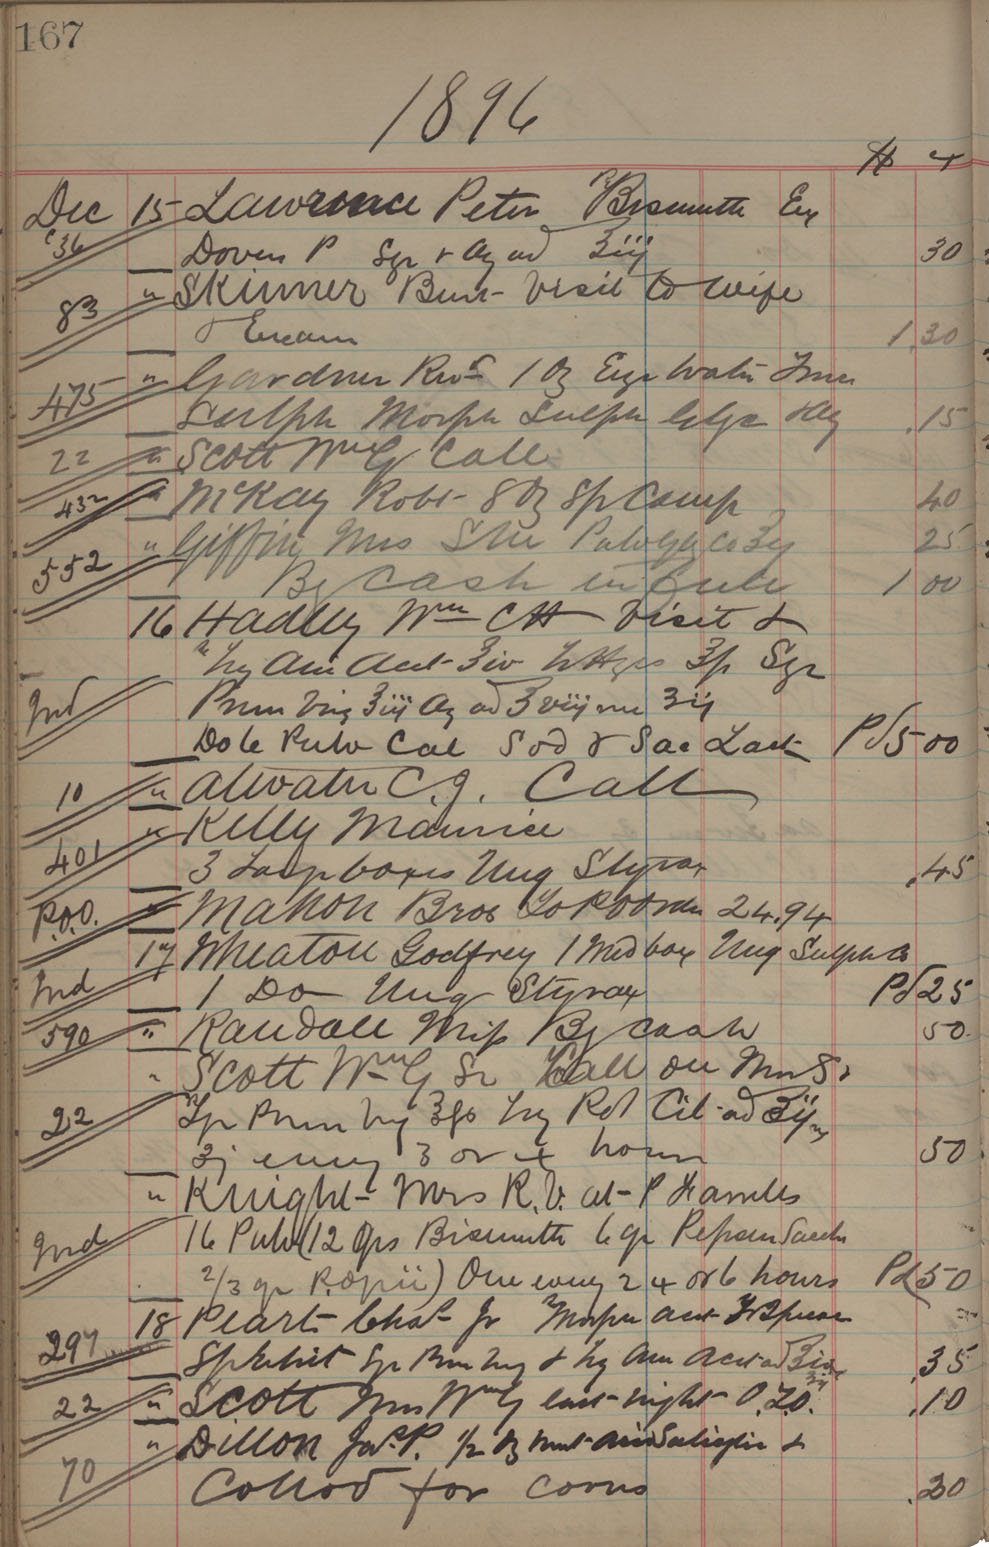 167
1896
$ ¢
Dec 15 Lawrence Peter Bismuth
36 Dovers P Syr + Aq ad ℨiij 30
83 " Skinner Burr Visit to Wife
+ Exam 1.30
475 " Gardner 1 Oz Eye Water
Sulph Morph Sulph .15
22 " Scott Wm G Call
432 " McKay Robt 8 Oz Sp Camp 40
552 " Giffin Mrs Pulv Glyc Co ℨij 25
By Cash in full 1 00
16 Hadley Wm CH Visit &
Am Acet ℨiv Syr
Ind Prun Virg ℨiij Aq ad ℨviij ℨij
Do 6 Pulv Cal Sod & Sac Lact Pd 5 00
10 " Atwater C.J. Call
401 " Kelly Maurice
3 boxes Ung Styrax .45
P.O.O. " Mahon Bros To P O Order 24.94
17 Wheaton Godfrey 1 Med box Ung Sulph
Ind 1 Do Ung Styrax Pd 25
590 " Randall Miss By cash 50
" Scott Wm G Sr Call on Mrs S
22 Syr Prun Virg Cit ad ℨij
ℨj every 3 or 4 hours 50
" Knight Mrs R.V. at P
Ind 16 Pulv (12 grs Bismuth 6 gr Pepsin Sacch
2/3 gr P. Opii) One every 2 4 or 6 hours Pd 50
18 Peart Chas Jr
297 Syr Prun Virg & Am Acet ad .35
22 " Scott Mrs Wm G last night .10
70 " Dillon Jas. P. 1/2 Oz &
Collod for corns .20